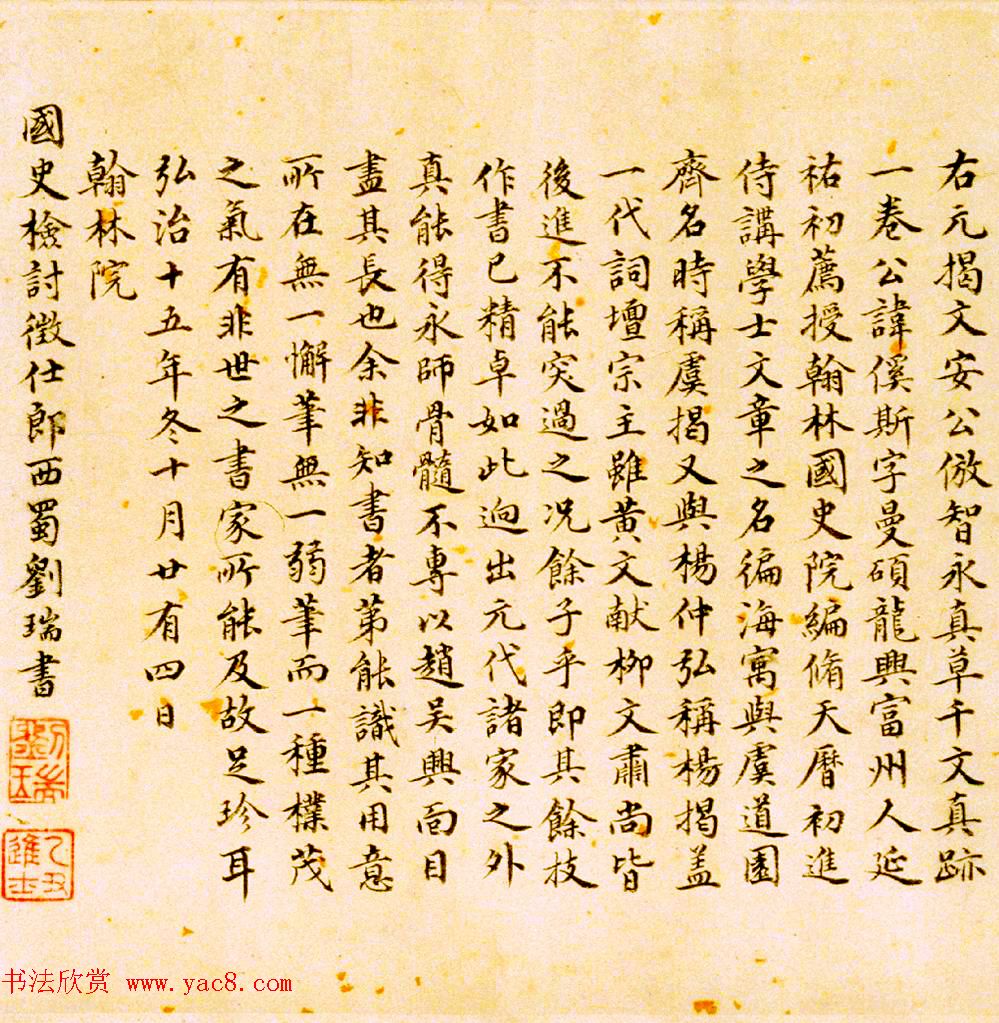 右元揭文安公倣智永真草千文真跡
一卷公諱傒斯字曼碩龍興富州人延
祐初薦授翰林國史院編脩天曆初進
侍講學士文章之名徧海寓與虞道園
齊名時稱虞揭又與楊仲弘稱楊揭盖
一代詞壇宗主雖黃文献柳文肅尚皆
後進不能突過之况餘子乎即其餘技
作書已精卓如此逈出元代諸家之外
真能得永師骨髓不專以趙吴興面目
盡其長也余非知書者第能識其用意
所在無一懈筆無一弱筆而一種樸茂
之氣有非世之書家所能及故足珍耳
弘治十五年冬十月廿有四日
翰林院
國史檢討徵仕郎西蜀劉瑞書
劉瑞
進士
书法欣赏 www.yac8.com